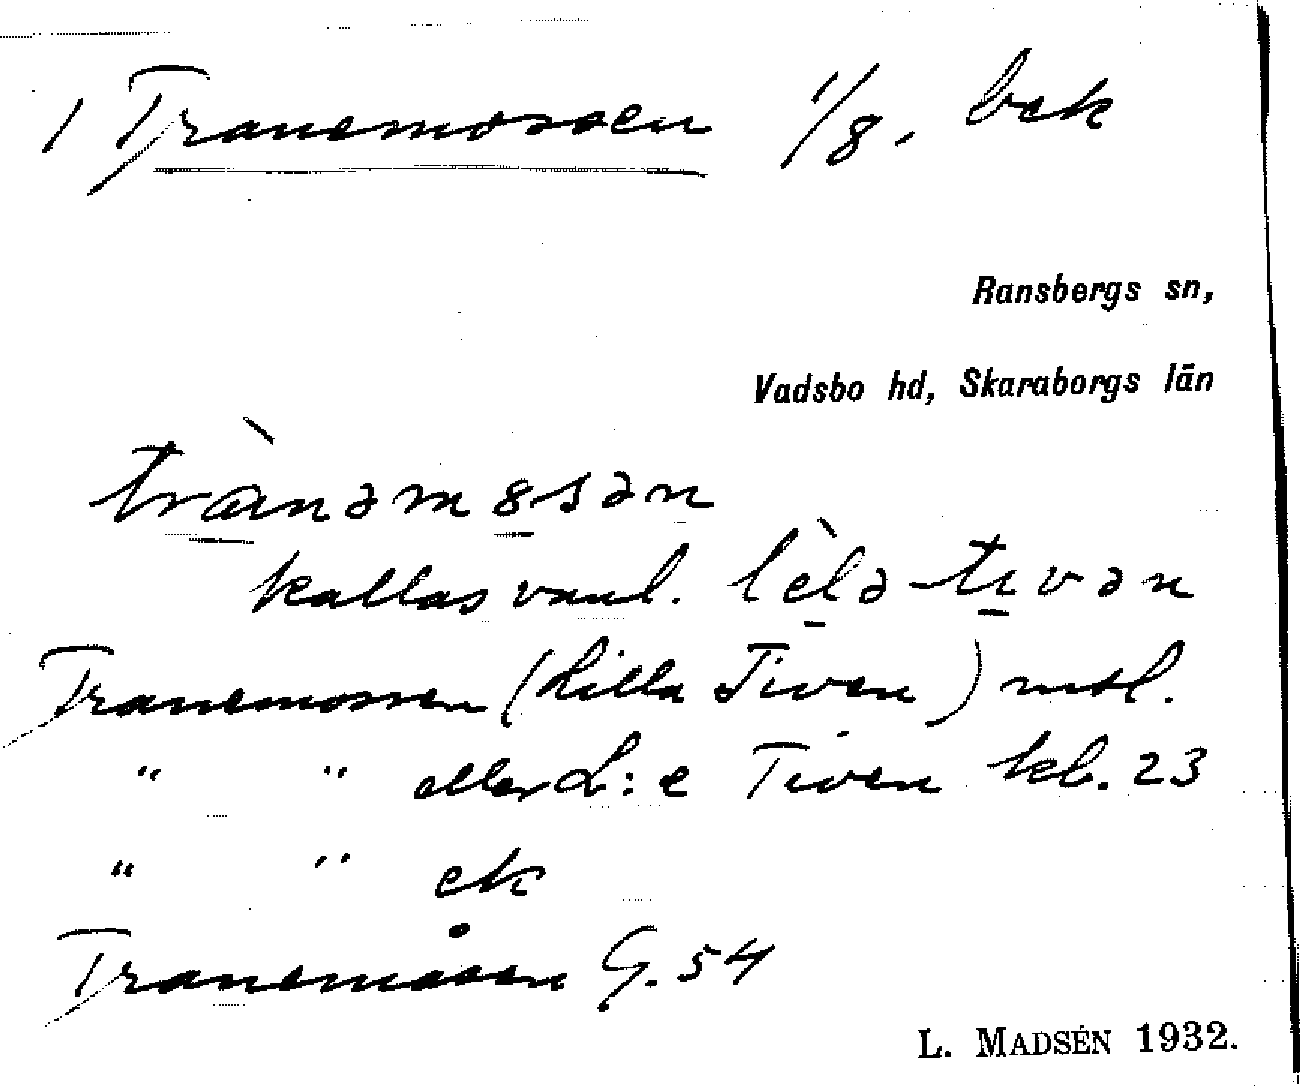 1 Tranemossen 1/8. bek
Ransbergs sn,
Vadsbo hd, Skaraborgs län
trànəmꝏsən
kallas vanl. lèlə-tivən
Tranemossen (Lilla Tiven) mtl.
" " eller L:e Tiven kb. 23
" " ek
Tranemåsen G. 54
L. MADSÉN 1932.